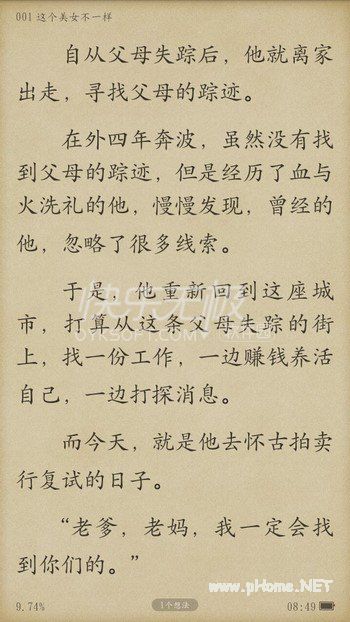 001 这个美女不一样
自从父母失踪后，他就离家
出走，寻找父母的踪迹。
在外四年奔波，虽然没有找
到父母的踪迹，但是经历了血与
火洗礼的他，慢慢发现，曾经的
他，忽略了很多线索。
于是，他重新回到这座城
市，打算从这条父母失踪的街
上，找一份工作，一边赚钱养活
自己，一边打探消息。
OYKSOFT.COM
而今天，就是他去怀古拍卖
行复试的日子。
“老爹，老妈，我一定会找
到你们的。”
www.pHome.NET
9.74%
1个想法
08:49